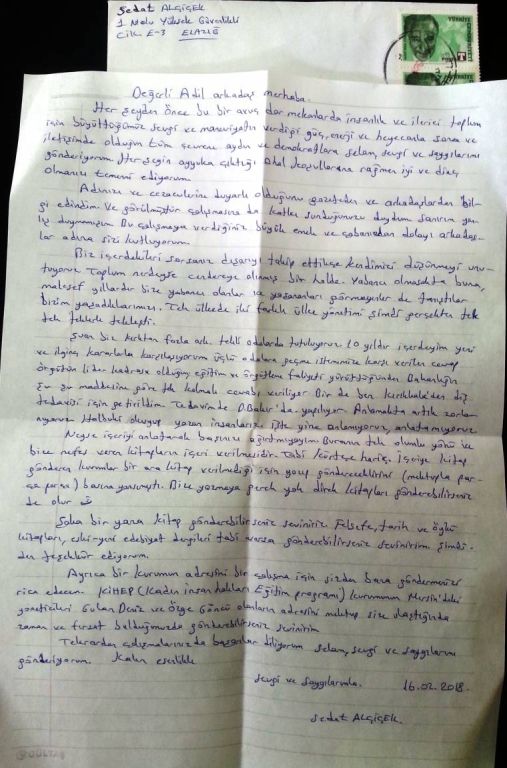 Sedat ALÇİÇEK
1 Nolu Yüksek Güvenlikli
Cik E-3 ELAZIĞ
TÜRKİYE
Değerli Adil arkadaş merhaba.
Her şeyden önce bu bir avuç dar mekanlarda insanlık ve ilerici toplum
için büyüttüğümüz sevgi ve maneviyatın verdiği güç, enerji ve heyecanla sana ve
iletişimde olduğun tüm çevrene aydın ve demokratlara selam, sevgi ve saygılarımı
gönderiyorum. Her şeyin ayyuka çıktığı Ahal koşullarına rağmen iyi ve dinç
olmanızı temenni ediyorum.
Adınızı ve cezaevlerine duyarlı olduğunu gazeteden ve arkadaşlardan bil-
gi edindim ve görülmüştür çalışmasına da katkı sunduğunuzu duydum sanırım yan-
lış duymamışım Bu çalışmaya verdiğiniz büyük emek ve çabanızdan dolayı arkadaş-
lar adına sizi kutluyorum.
Biz içerdekileri sorsanız dışarıyı takip ettikçe kendimizi düşünmeyi unu-
tuyoruz Toplum nerdeyse cendereye alınmış bir halde. Yabancı olmasakta buna,
malesef yıllardır bize yabancı olanlar ve yaşananları görmeyenler de tanıştılar
bizim yaşadıklarımızı. Tek ülkede iki farklı ülke yönetimi şimdi gerçekten tek
tek teklerle tekleşti.
Şuan biz kırktan fazla ark. tekli odalarda tutuluyoruz. 10 yıldır içerdeyim yeni
ve ilginç kararlarla karşılaşıyorum üçlü odalara geçme istemimize karşı verilen cevap
örgütün lider kadrosu olduğum eğitim ve örgütleme faliyeti yürüttüğünden Bakanlığın
şu şu maddesine göre tek kalmalı cevabı veriliyor Bir de ben Kırıkkale'den diş
tedavisi için getirildim Tedavimde D.Bakır'da yapılıyor. Anlamakta artık zorla-
nıyoruz Halbuki okuyup yazan insanlarız işte yine anlamıyoruz, anlatamıyoruz
Neyse içeriyi anlatarak başınızı ağrıtmayayım Buranın tek olumlu yönü ve
bize nefes veren kitapların içeri verilmesidir. Tabi kürtçe hariç. İçeriye kitap
gönderen kurumlar bir ara kitap verilmediği için yazıp göndereceklerini (mektupla par-
ça parça) basına yansımıştı. Bize yazmaya gerek yok direk kitapları gönderebilirseniz
de olur
Şaka bir yana kitap gönderebilirseniz seviniriz Felsefe, tarih ve öykü
kitapları, eski-yeni edebiyat dergileri tabi varsa gönderebilirseniz sevinirim. Şimdi-
den teşekkür ediyorum.
Ayrıca bir kurumun adresini bir çalışma için sizden bana göndermenizi
rica edecem. KİHEP (Kadın insan hakları Eğitim programı) kurumunun Mersin'deki
yöneticileri Gülan Deniz ve Özge Göncü olanların adresini mektup size ulaştığında
zaman ve fırsat bulduğumuzda gönderebilirseniz sevinirim
Tekrardan çalışmalarınızda başarılar diliyorum selam, sevgi ve saygılarımı
gönderiyorum. Kalın esenlikle
Sevgi ve saygılarımla. 16.02.2018.
Sedat ALÇİÇEK.